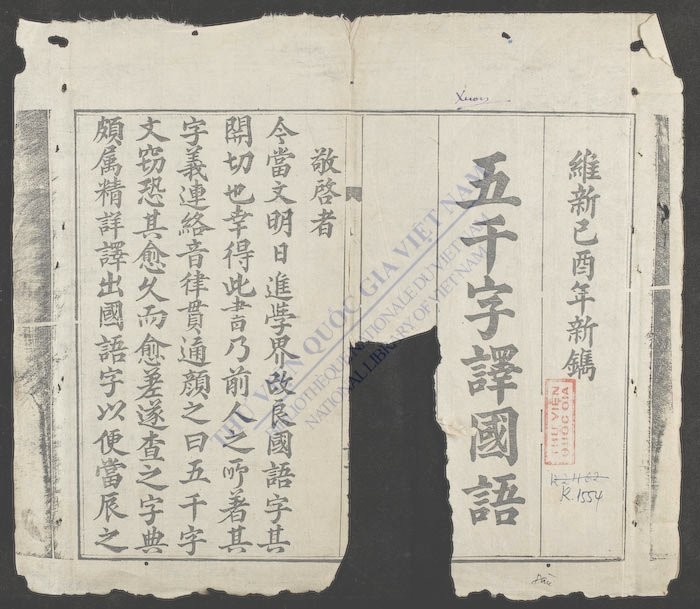 維新己酉年新鐫
五千字譯國語
敬啓者
今當文明日進學界改良國語字其
関切也幸得此書乃前人之所著其
字義連絡音律貫通顔之曰五千字
文窃恐其愈久而愈差遂查之字典
頗属精詳譯出國語字以便當辰之
THƯ VIỆN
QUỐC GIA
K.1554
THƯ VIỆN QUỐC GIA VIỆT NAM
BIBLIOTHÈQUE NATIONALE DU VIETNAM
NATIONAL LIBRARY OF VIETNAM